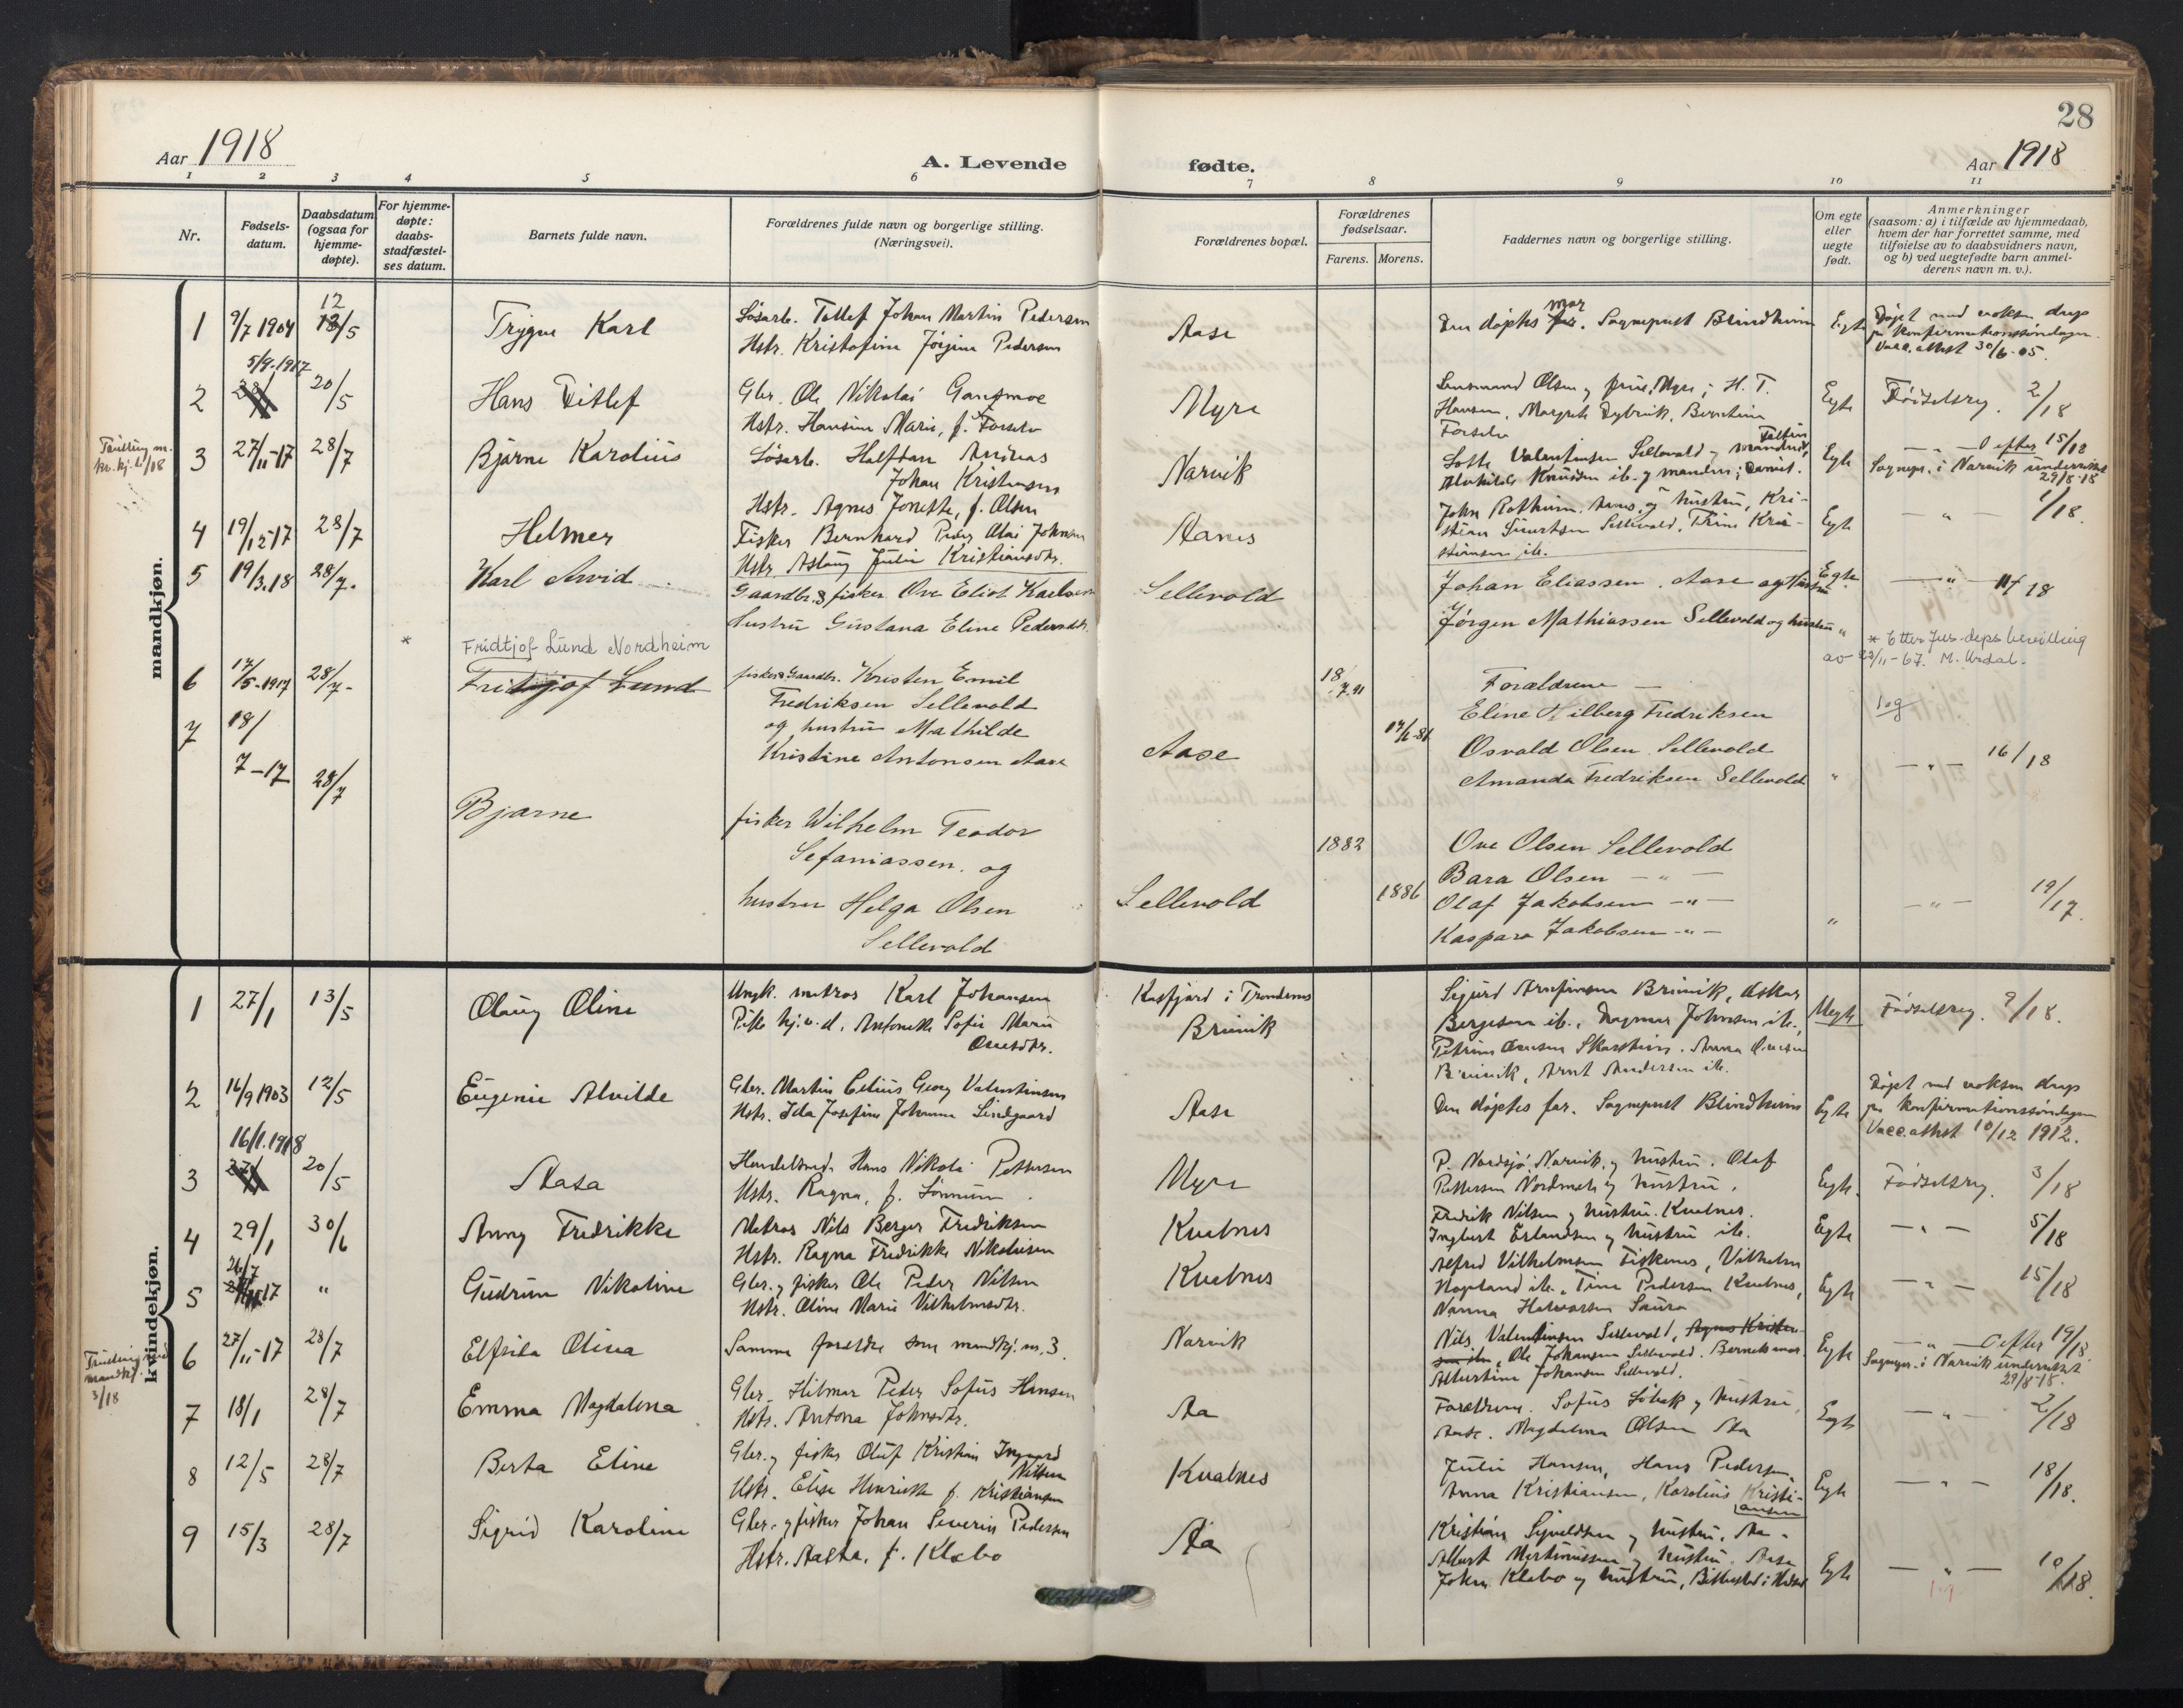 28
Aar 1918
A. Levende fødte.
Aar 1918
1 2 3 4 5 6 7 8 9 10 11
Nr.
Fødsels-datum.
Daabsdatum (ogsaa for hjemme-døpte).
For hjemme-døpte: daabs-stadfæstel-ses datum.
Barnets fulde navn.
Forældrenes fulde navn og borgerlige stilling. (Næringsvei).
Forældrenes bopæl.
Forældrenes fødselsaar.
Farens. Morens.
Faddernes navn og borgerlige stilling.
Om egte eller uegte født.
Anmerkninger
(saasom: a) i tilfælde av hjemmedaab,
hvem der har forrettet samme, med
tilføielse av to daabsvidners navn,
og b) ved uegtefødte barn anmel-
derens navn m. v.).
mandkjøn.
1 9/7 1904 12/5 Trygve Karl
Løsarb. Tollef Johan Martin Pedersen
Hstr. Kristofine Jørgine Pedersen
Aase
Den døptes mor. Sogneprest Blindheim
Egte
Døpt med voksen daap
paa konfirmationssøndagen.
Vacc.attest 30/6-05.
2 5/9-1917 20/5 Hans Ditlef
Gbr. Ole Nikolai Gansmoe
Hstr. Hansine Marie, f. Forselv
Myre
Lensmand Olsen og frue, Myre; H. T.
Hansen, Margrete Dybvik, Berntine
Forselv
Egte
Fødselsreg. 2/18
Tvilling m.
kv.kj. 6/18
3 27/11-17 28/7 Bjarne Karolius
Løsarb. Halfdan Andreas
Johan Kristensen
Hstr. Agnes Jonette, f. Olsen
Narvik
Lotte Valentinsen Sellevold
Alvhilde Knudsen ib. og manden; Daniel.
Egte
— „ — 15/18
Sognepr. i Narvik underrettet
29/8-18
4 19/12-17 28/7 Helmer
Fisker Bernhard Peder Olai Johnsen
Hstr. Aslaug Julie Kristiansdtr.
Aanes
John Rotheim. Aanes, og hustru, Kri-
stian Sivertsen Sellevold. Trine Kri-
stiansen ib.
Egte
— „ — 1/18.
5 19/3.18 28/7. Karl Arvid
Gaardbr. & fisker Ove Eliot Karlsen
Hustru Gustava Eline Pedersdtr.
Sellevold
Johan Eliassen. Aase og Hustru
Jørgen Mathiassen Sellevold og hustru
Egte
— „ — 11/18
* Fridtjof Lund Nordheim
* Etter Jus-deps bevilling
av 23/11-67. M. Urdal.
6 17/5-1917 28/7- Fritjof Lund
fisker & Gaardbr. Kristen Emil
Fredriksen Sellevold
og hustru Mathilde
Kristine Antonsen Aase
Aase
18/7.91
Forældrene —
Eline Hilberg Fredriksen
Osvald Olsen Sellevold
Amanda Fredriksen Sellevold
„
— „ — 16/18
7 18/7-17 28/7 Bjarne
fisker Wilhelm Teodor
Sefaniassen. og
hustru Helga Olsen
Sellevold
Sellevold
1882
1886
Ove Olsen Sellevold
Bara Olsen — „ —
Olaf Jakobsen — „ —
Kaspara Jakobsen — „ —
„
— „ — 19/17.
kvindekjøn.
1 27/1 13/5 Olaug Oline
Ungk. matros Karl Johansen
Pike hj.v.d. Antonette Sofie Marie
Ovesdtr.
Kasfjord i Trondenes
Brimik
Sigurd Arnfinsen Brimik, Oskar
Bergesen ib., Dagmar Johnsen ib.,
Petrine Ovesen Skarstein. Anna Ovesen
Brimik, Arnt Andersen ib.
Uegte
Fødselsreg. 9/18.
2 16/9 1903 12/5 Eugenie Alvilde
Gbr. Martin Celius Georg Valentinsen
Hstr. Ida Josefine Johanna Lindgaard
Aase
Den døptes far. Sogneprest Blindheim
Egte
Døpt med voksen daap
paa konfirmationssøndagen
Vacc.attest 10/12 1912.
3 16/1.1918 20/5 Aasa
Handelsmd. Hans Nikolai Pettersen
Hstr. Ragna, f. Lønnum
Myre
P. Nordsjø, Narvik, og hustru. Olaf
Pettersen Nordmela og hustru.
Egte.
Fødselsreg. 3/18
4 29/1 30/6 Anny Fredrikke
Matros Nils Berger Fredriksen
Hstr. Ragna Fredrikke Nikolaisen
Kvalnes
Fredrik Nilsen og hustru. Kvalnes.
Ingbert Erlandsen og hustru ib.
Egte
— „ — 5/18
5 26/7 17 „ Gudrun Nikoline
Gbr. og fisker Ole Peder Nilsen
Hstr. Oline Marie Vilhelmsdtr.
Kvalnes
Alfred Vilhelmsen Fiskenes, Vilhelm
Hopland ib., Tine Pedersen Kvalnes,
Nanna Halvorsen Saura
Egte
— „ — 15/18
Tvilling med
mandkj.
3/18
6 27/11-17 28/7 Elfrida Olina
Samme forældre som mandkj. nr. 3.
Narvik
Nils Valentinsen Sellevold, Agnes Kristen-
sen ib., Ole Johansen Sellevold. Barnets mor.
Albertine Johansen Sellevold.
Egte
— „ — 19/18.
Sognepr. i Narvik underrettet
29/8-18.
7 18/1 28/7 Emma Magdalena
Gbr. Hilmar Peder Sofus Hansen
Hstr. Antona Johnsdtr.
Aa
Forældrene. Sofus Løbak og hustru,
Aase. Magdalena Olsen Aa
Egte
— „ — 2/18
8 12/5 28/7 Berta Eline
Gbr. og fisker Oluf Kristian Ingvard
Nilsen
Hstr. Elise Henrikke f. Kristiansen
Kvalnes
Julie Hansen, Hans Pedersen,
Anna Kristiansen, Karolius Kristi-
ansen
Egte
— „ — 18/18.
9 15/3 28/7 Sigrid Karoline
Gbr. og fisker Johan Severin Pedersen
Hstr. Aasta, f. Klabo
Aa
Kristian Sivertsen og hustru, Aa.
Albert Martinussen og hustru. Aase
Johan Klabo og hustru,
Egte
— „ — 10/18.